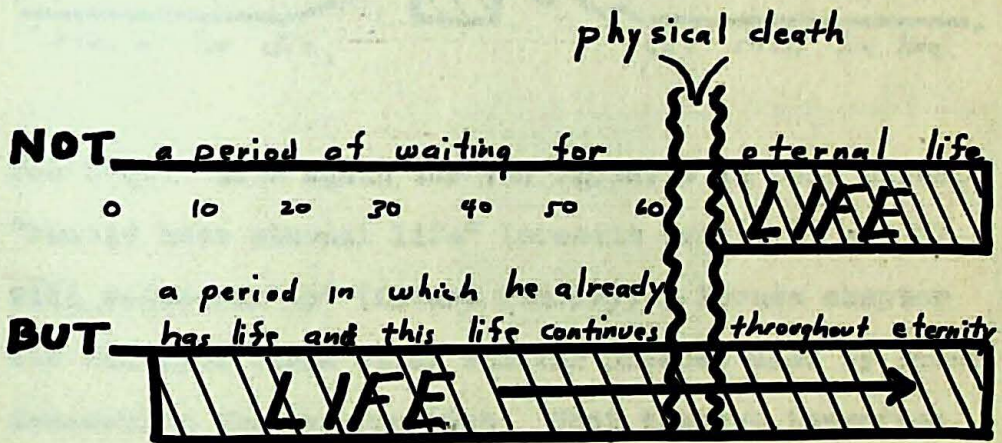 physical death
NOT a period of waiting for eternal life
0 10 20 30 40 50 60 LIFE
a period in which he already
BUT has life and this life continues throughout eternity
LIFE